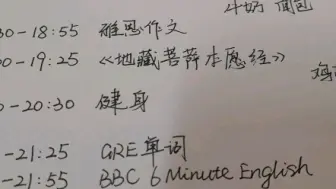 牛奶 面包
30-18:55 雅思作文
00-19:25 《地藏菩萨本愿经》
鸡
-20:30 健身
-21:25 GRE单词
-21:55 BBC 6 Minute English